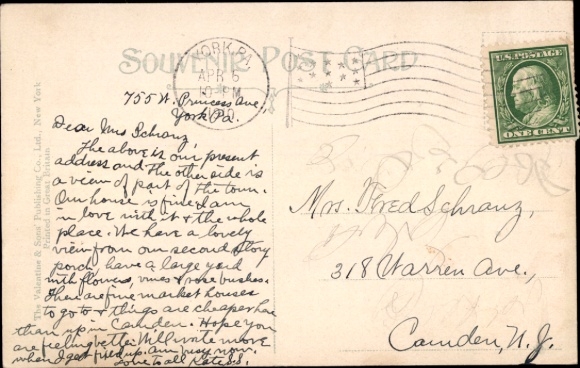 SOUVENIR POST CARD
YORK, PA.
APR 6
10 PM
U.S. POSTAGE
ONE CENT
The Valentine & Sons' Publishing Co., Ltd., New York
Printed in Great Britain
755 W. Princess Ave,
York Pa.
Dear Mrs Schranz,
The above is our present
address and the other side is
a view of part of the town.
Our house is fine & am
in love with it & the whole
place. We have a lovely
view from our second story
porch, have a large yard
with flowers, vines & rose bushes.
There are five market houses
to go to & things are cheaper here
than up in Camden. Hope you
are feeling better. Will write more
when I get fixed up. am busy now.
Love to all
Mrs. Fred Schranz,
318 Warren Ave.,
Camden, N.J.